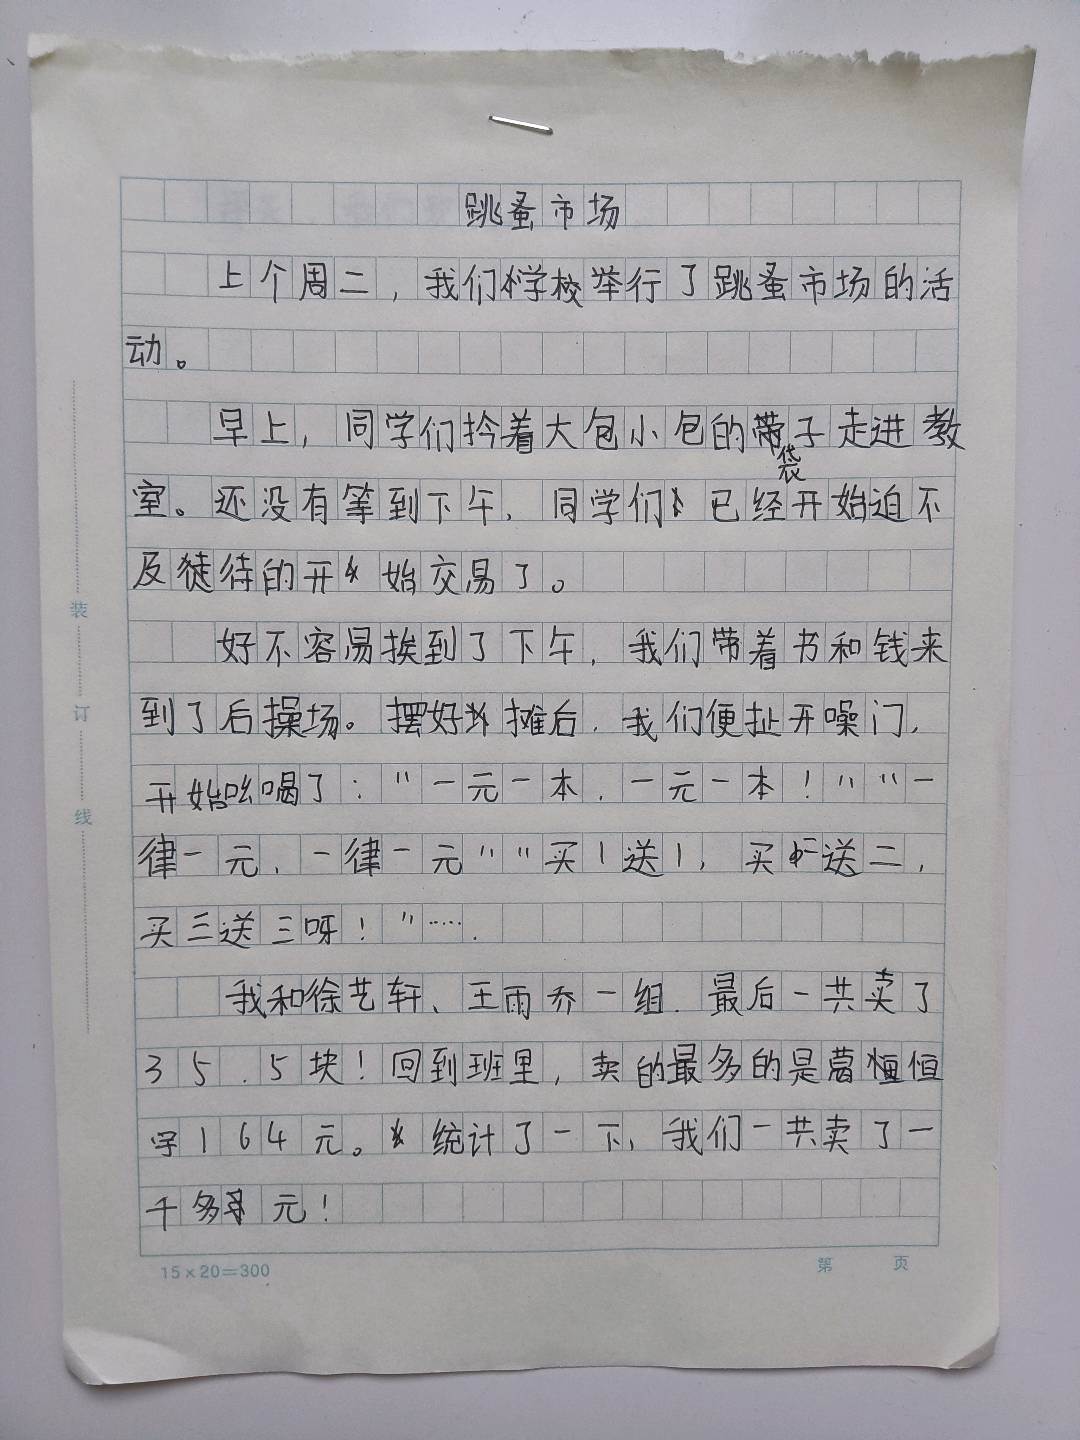 跳蚤市场
上个周二，我们学校举行了跳蚤市场的活
动。
早上，同学们拎着大包小包的袋子走进教
室。还没有等到下午，同学们已经开始迫不
及待的开始交易了。
好不容易挨到了下午，我们带着书和钱来
到了后操场。摆好摊后，我们便扯开嗓门，
开始吆喝了：“一元一本，一元一本！”“一
律一元，一律一元”“买1送1，买二送二，
买三送三呀！”……
我和徐艺轩、王雨乔一组，最后一共卖了
35.5块！回到班里，卖的最多的是恒
宇164元。统计了一下，我们一共卖了一
千多元！
装
订
线
15×20=300
第 页